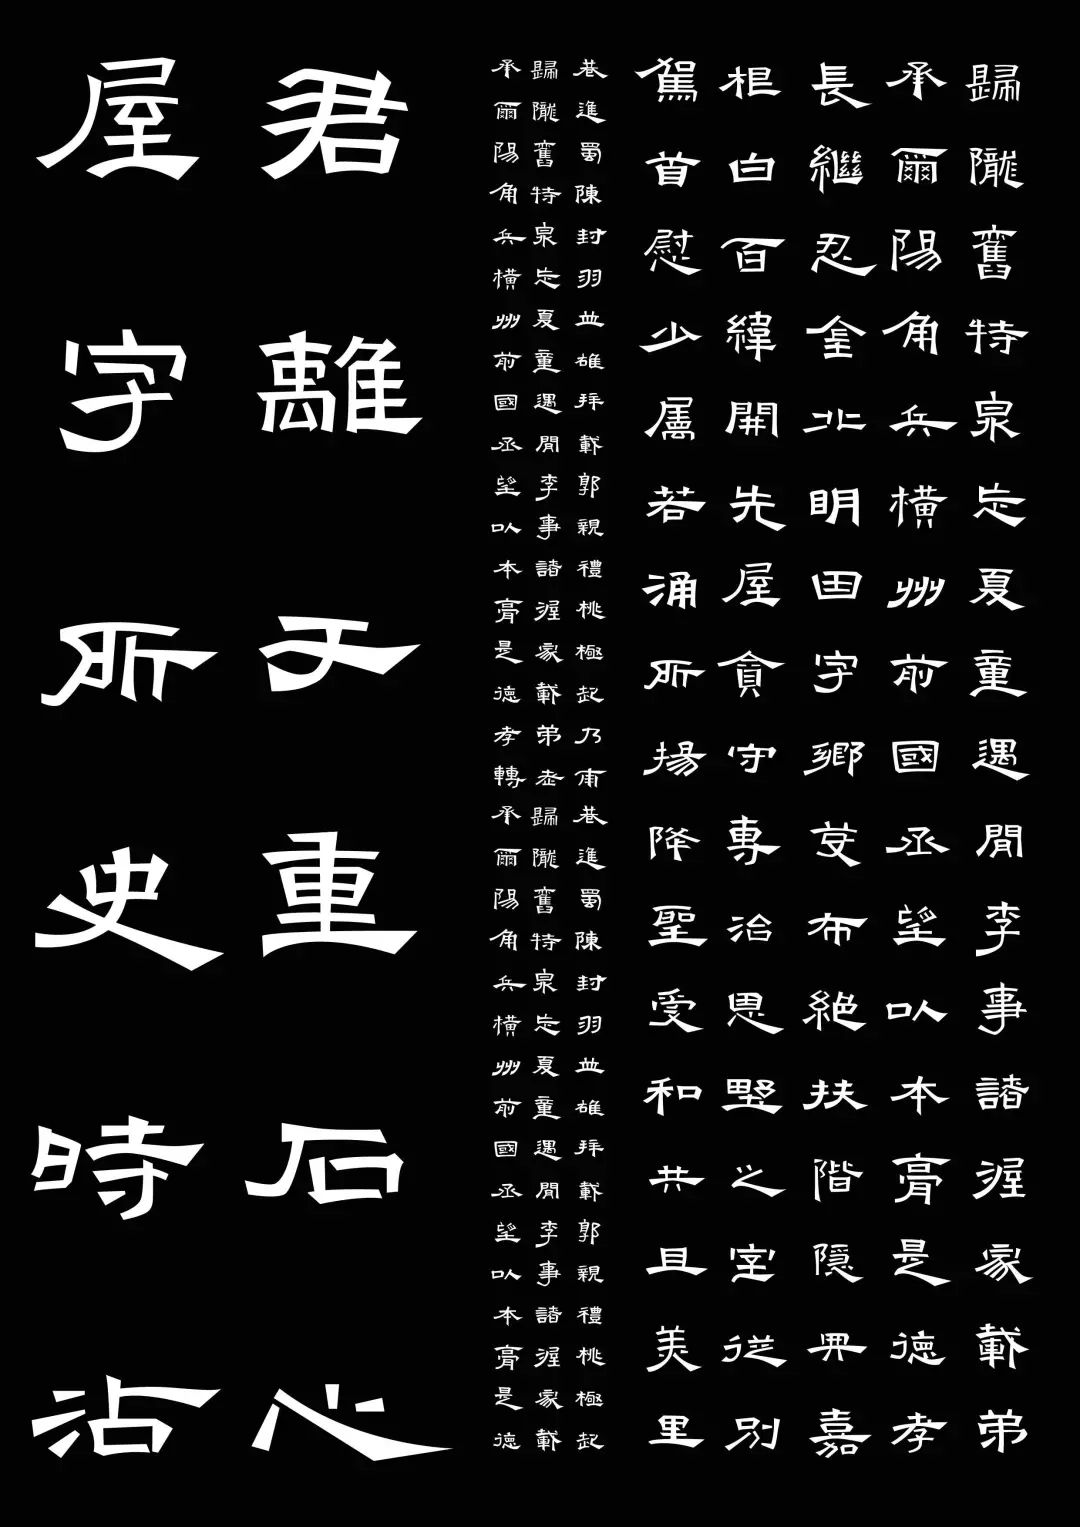 歸隴舊特泉忘夏童遇閒李事諸渥家載弟
承爾陽角兵橫州前國丞望以本膏是德孝
長繼忍金北明田字鄉芟布絶扶階隱冊嘉
白百緯開先屋守專治恩野之室從別
駕首慰少属若涌所揚降聖受和共且美里
巷進蜀陳封羽並雄拜載郭親禮桃極起乃甫巷進蜀陳封羽並雄拜載郭親禮桃極起
歸隴舊特泉忘夏童遇閒李事諸渥家載弟歸隴舊特泉忘夏童遇閒李事諸渥家載
承爾陽角兵橫州前國丞望以本膏是德孝轉承爾陽角兵橫州前國丞望以本膏是德
君離于重石心
屋字所史時沾